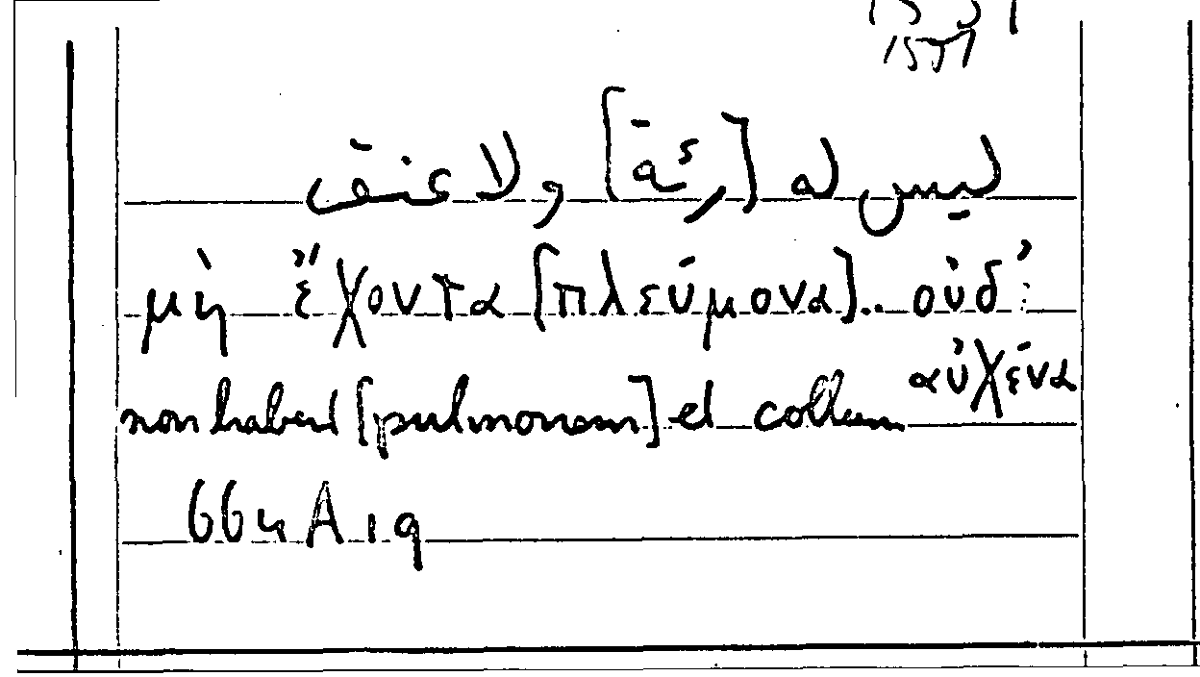 1551
ليس له [رئة] ولا عنق
μὴ ἔχοντα [πλεύμονα].. οὐδ᾽
αὐχένα
non habent [pulmonem] et collum
664 A 19